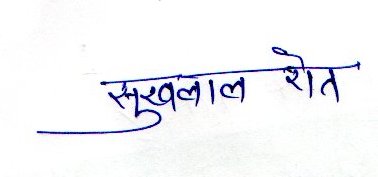 सुखलाल शेत